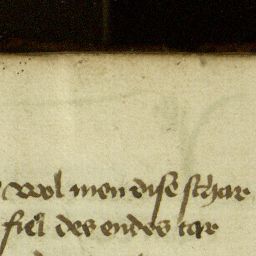 wol men dise schar
fiel des endes tar